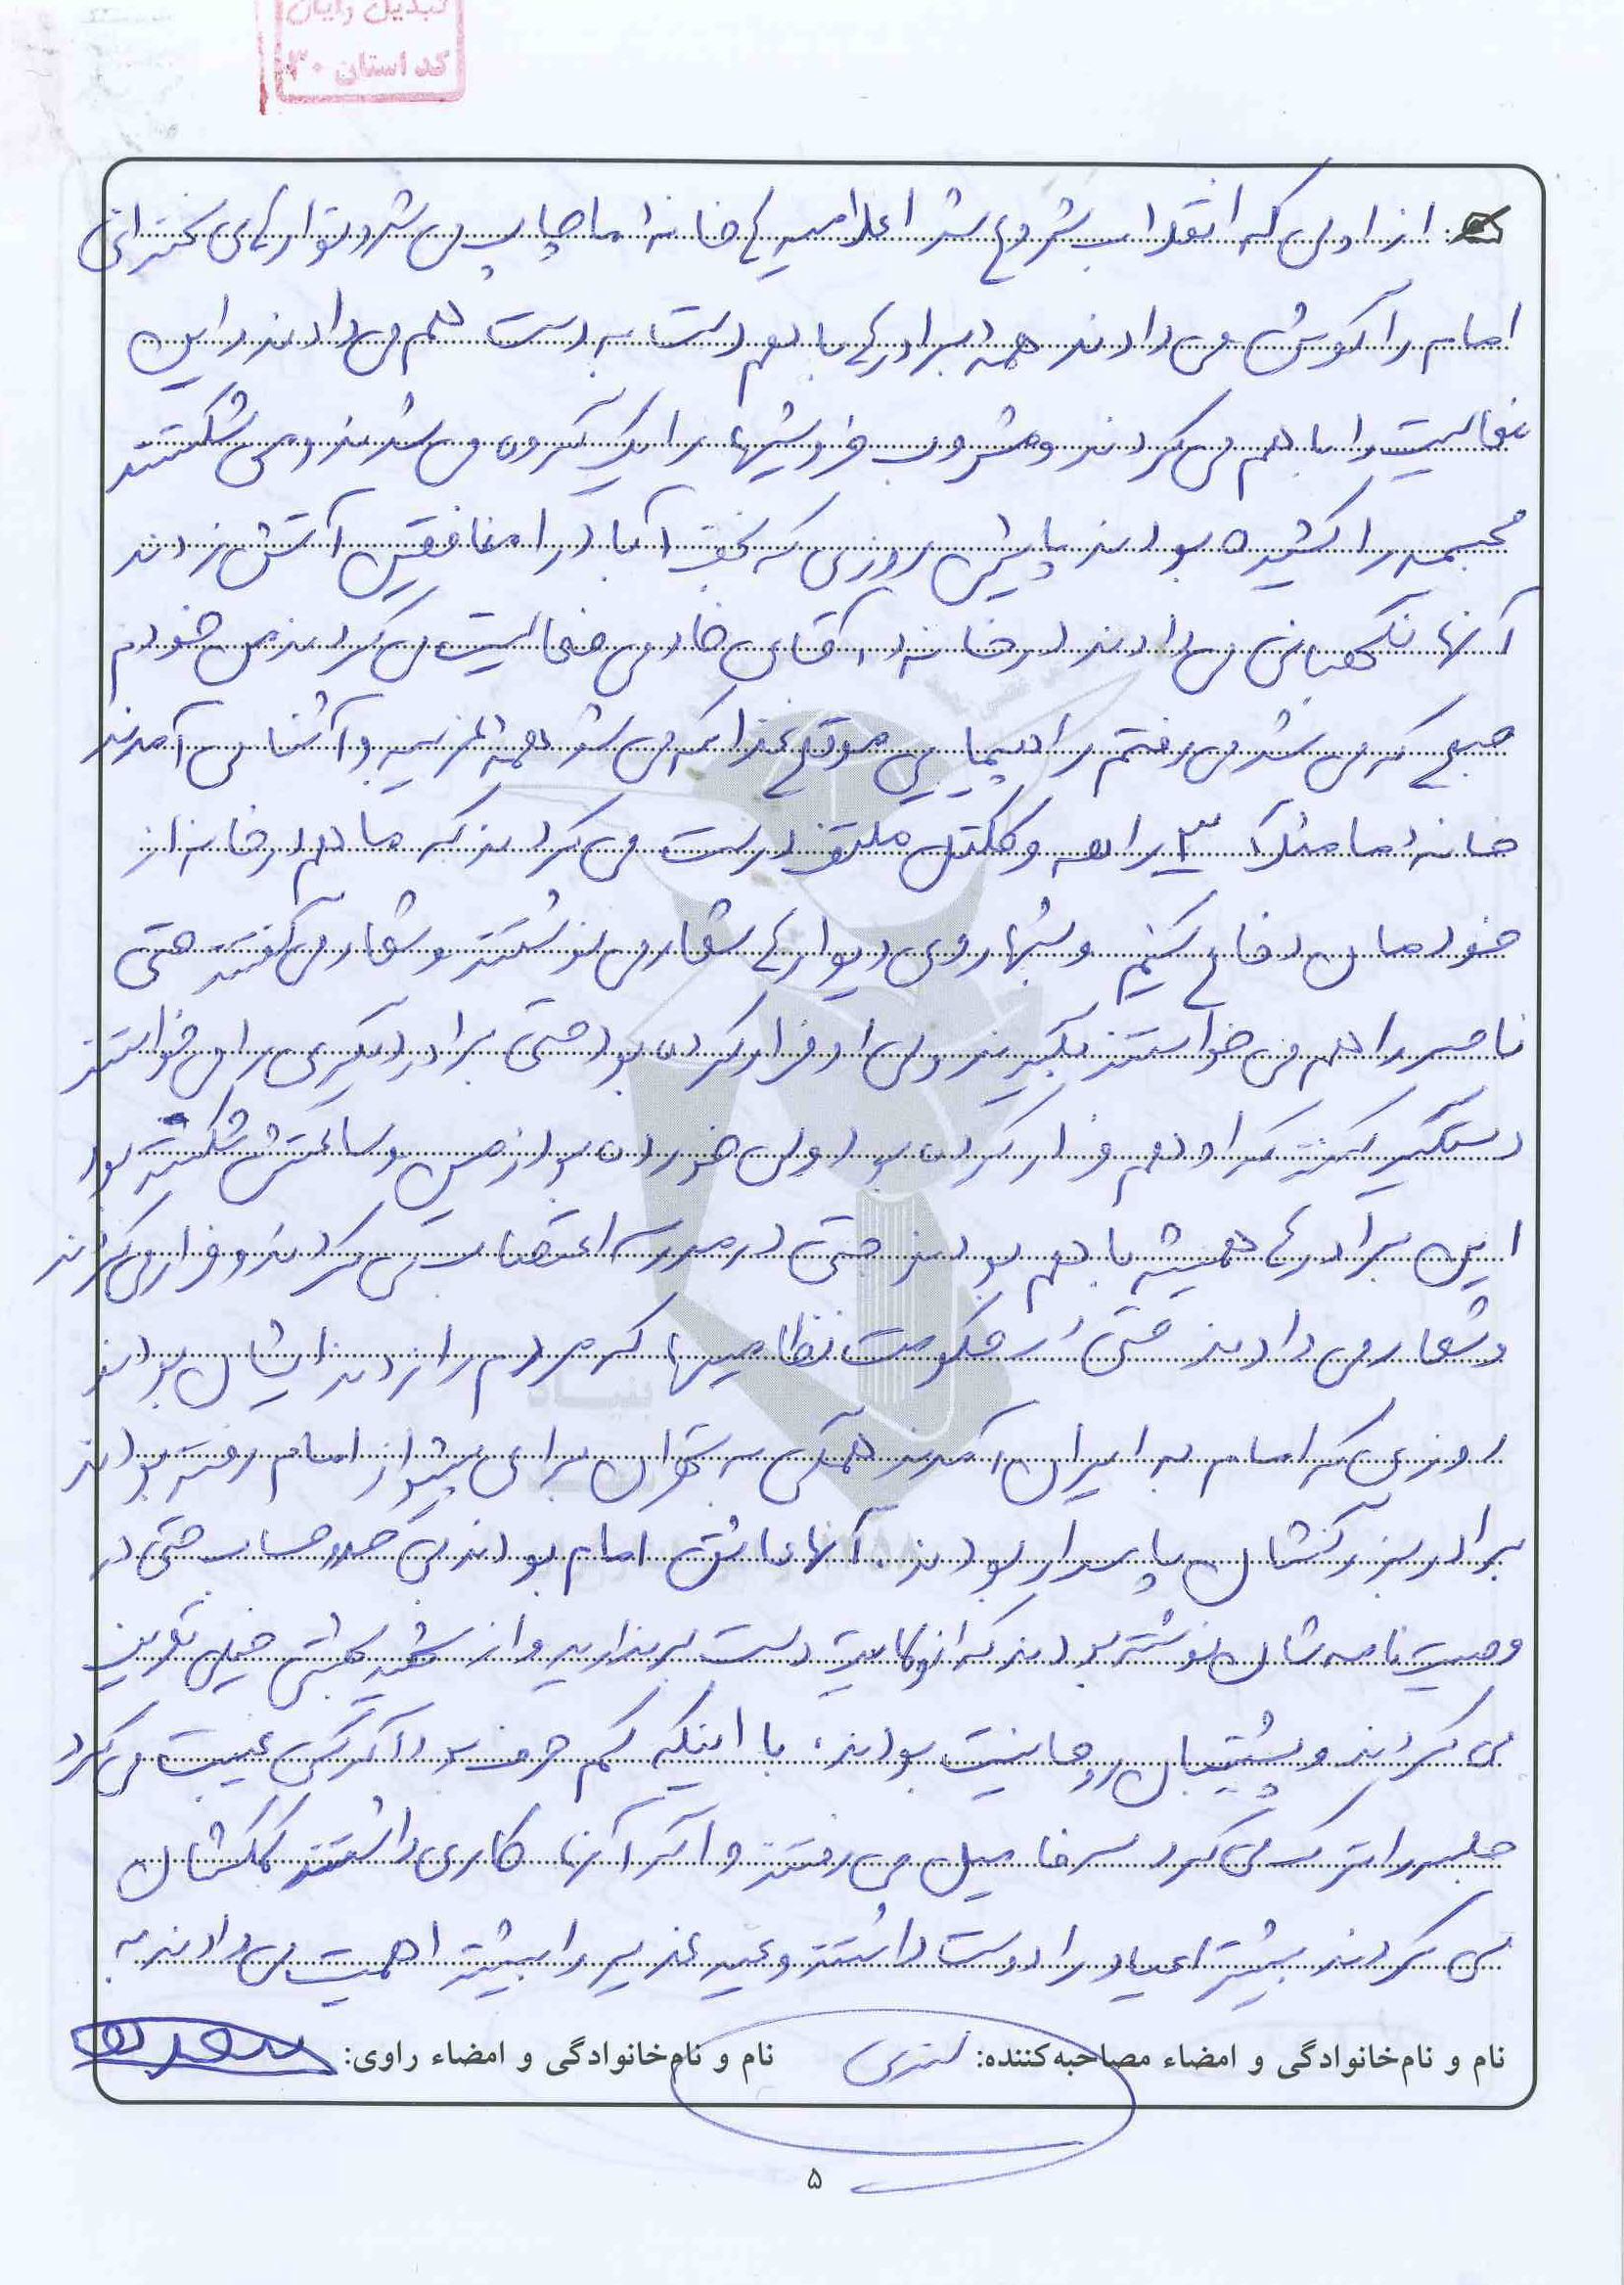 تبدیل رایان
کد استان ۳۰
از اولی که انقلاب شروع شد اعلامیه ها خانه ما چاپ می شد و نوارهای سخنرانی
امام را گوش می دادند همه برادرها با هم دست به دست هم می دادند و این
فعالیت را با هم می کردند و مشروب فروشیها را یک گروه می شدند و می شکستند
مجسمه را کشیده بودند پایین روزی که نجف آباد را منافقین آتش زدند
آنها نگهبانی می دادند در خانه آقای خادمی فعالیت می کردند من خودم
صبح که می شد می رفتم راهپیمایی موقع غذا که می شد همه غریبه و آشنا می آمدند
خانه ما مثلاً ۳ راهه و ککتل ملتف درست می کردند که ما هم در خانه از
خودمان دفاع کنیم و شبها روی دیوارها شعار می نوشتند و شعار می گفتند حتی
ناصر را هم می خواستند بگیرند ولی او فرار کرده بود حتی برادر دیگری را می خواستند
دستگیر کنند که او هم فرار کرده بود ولی خورده بود زمین و ساعتش شکسته بود
این برادرها همیشه با هم بودند حتی در مدرسه اعتصاب می کردند و فرار می کردند
و شعار می دادند حتی حکومت نظامیها که مردم را زدند ایشان بودند
روزی که امام به ایران آمدند همگی به تهران برای پیشواز امام رفته بودند
برادر بزرگشان پاسدار بودند. آنها عاشق امام بودند بی حد و حساب حتی در
وصیت نامه شان نوشته بودند که از ولایت دست برندارید و از شهید بهشتی خیلی تعریف
می کردند و پشتیبان روحانیت بودند. با اینکه کم حرف بود اگر کسی غیبت می کرد
جلسه را ترک می کرد سر فامیل می رفتند و اگر آنها کاری داشتند کمکشان
می کردند بیشتر اعیاد را دوست داشتند و عید غدیر را بیشتر اهمیت می دادند به
نام و نام‌خانوادگی و امضاء مصاحبه‌کننده: نام و نام‌خانوادگی و امضاء راوی:
۵